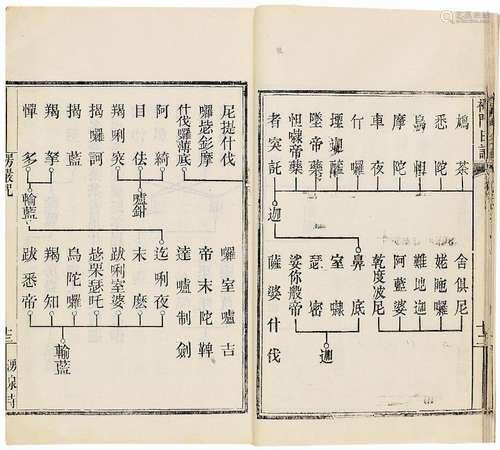 禪門日誦
十二
鳩茶
悉陀
烏怛
摩陀
車夜
囉
帝藥
怛囌帝藥
者突託
迦
舍俱尼
姥陁囉
維地迦
阿藍婆
乾度波尼
鼻底
室囌
瑟密
娑你般帝
薩婆什伐
迦
尼提什伐
囉毖釤摩
什伐薄底
阿綺
目佉
羯唎突
揭囉訶
揭藍
羯拏
憚多
嚧鉗
輸藍
囉室嚧吉
帝末陀鞞
達嚧制劍
迄唎夜
末麼
跋唎室婆
毖栗瑟吒
烏陀囉
羯知
跋悉帝
輸藍
楞嚴咒
十三
湧泉寺